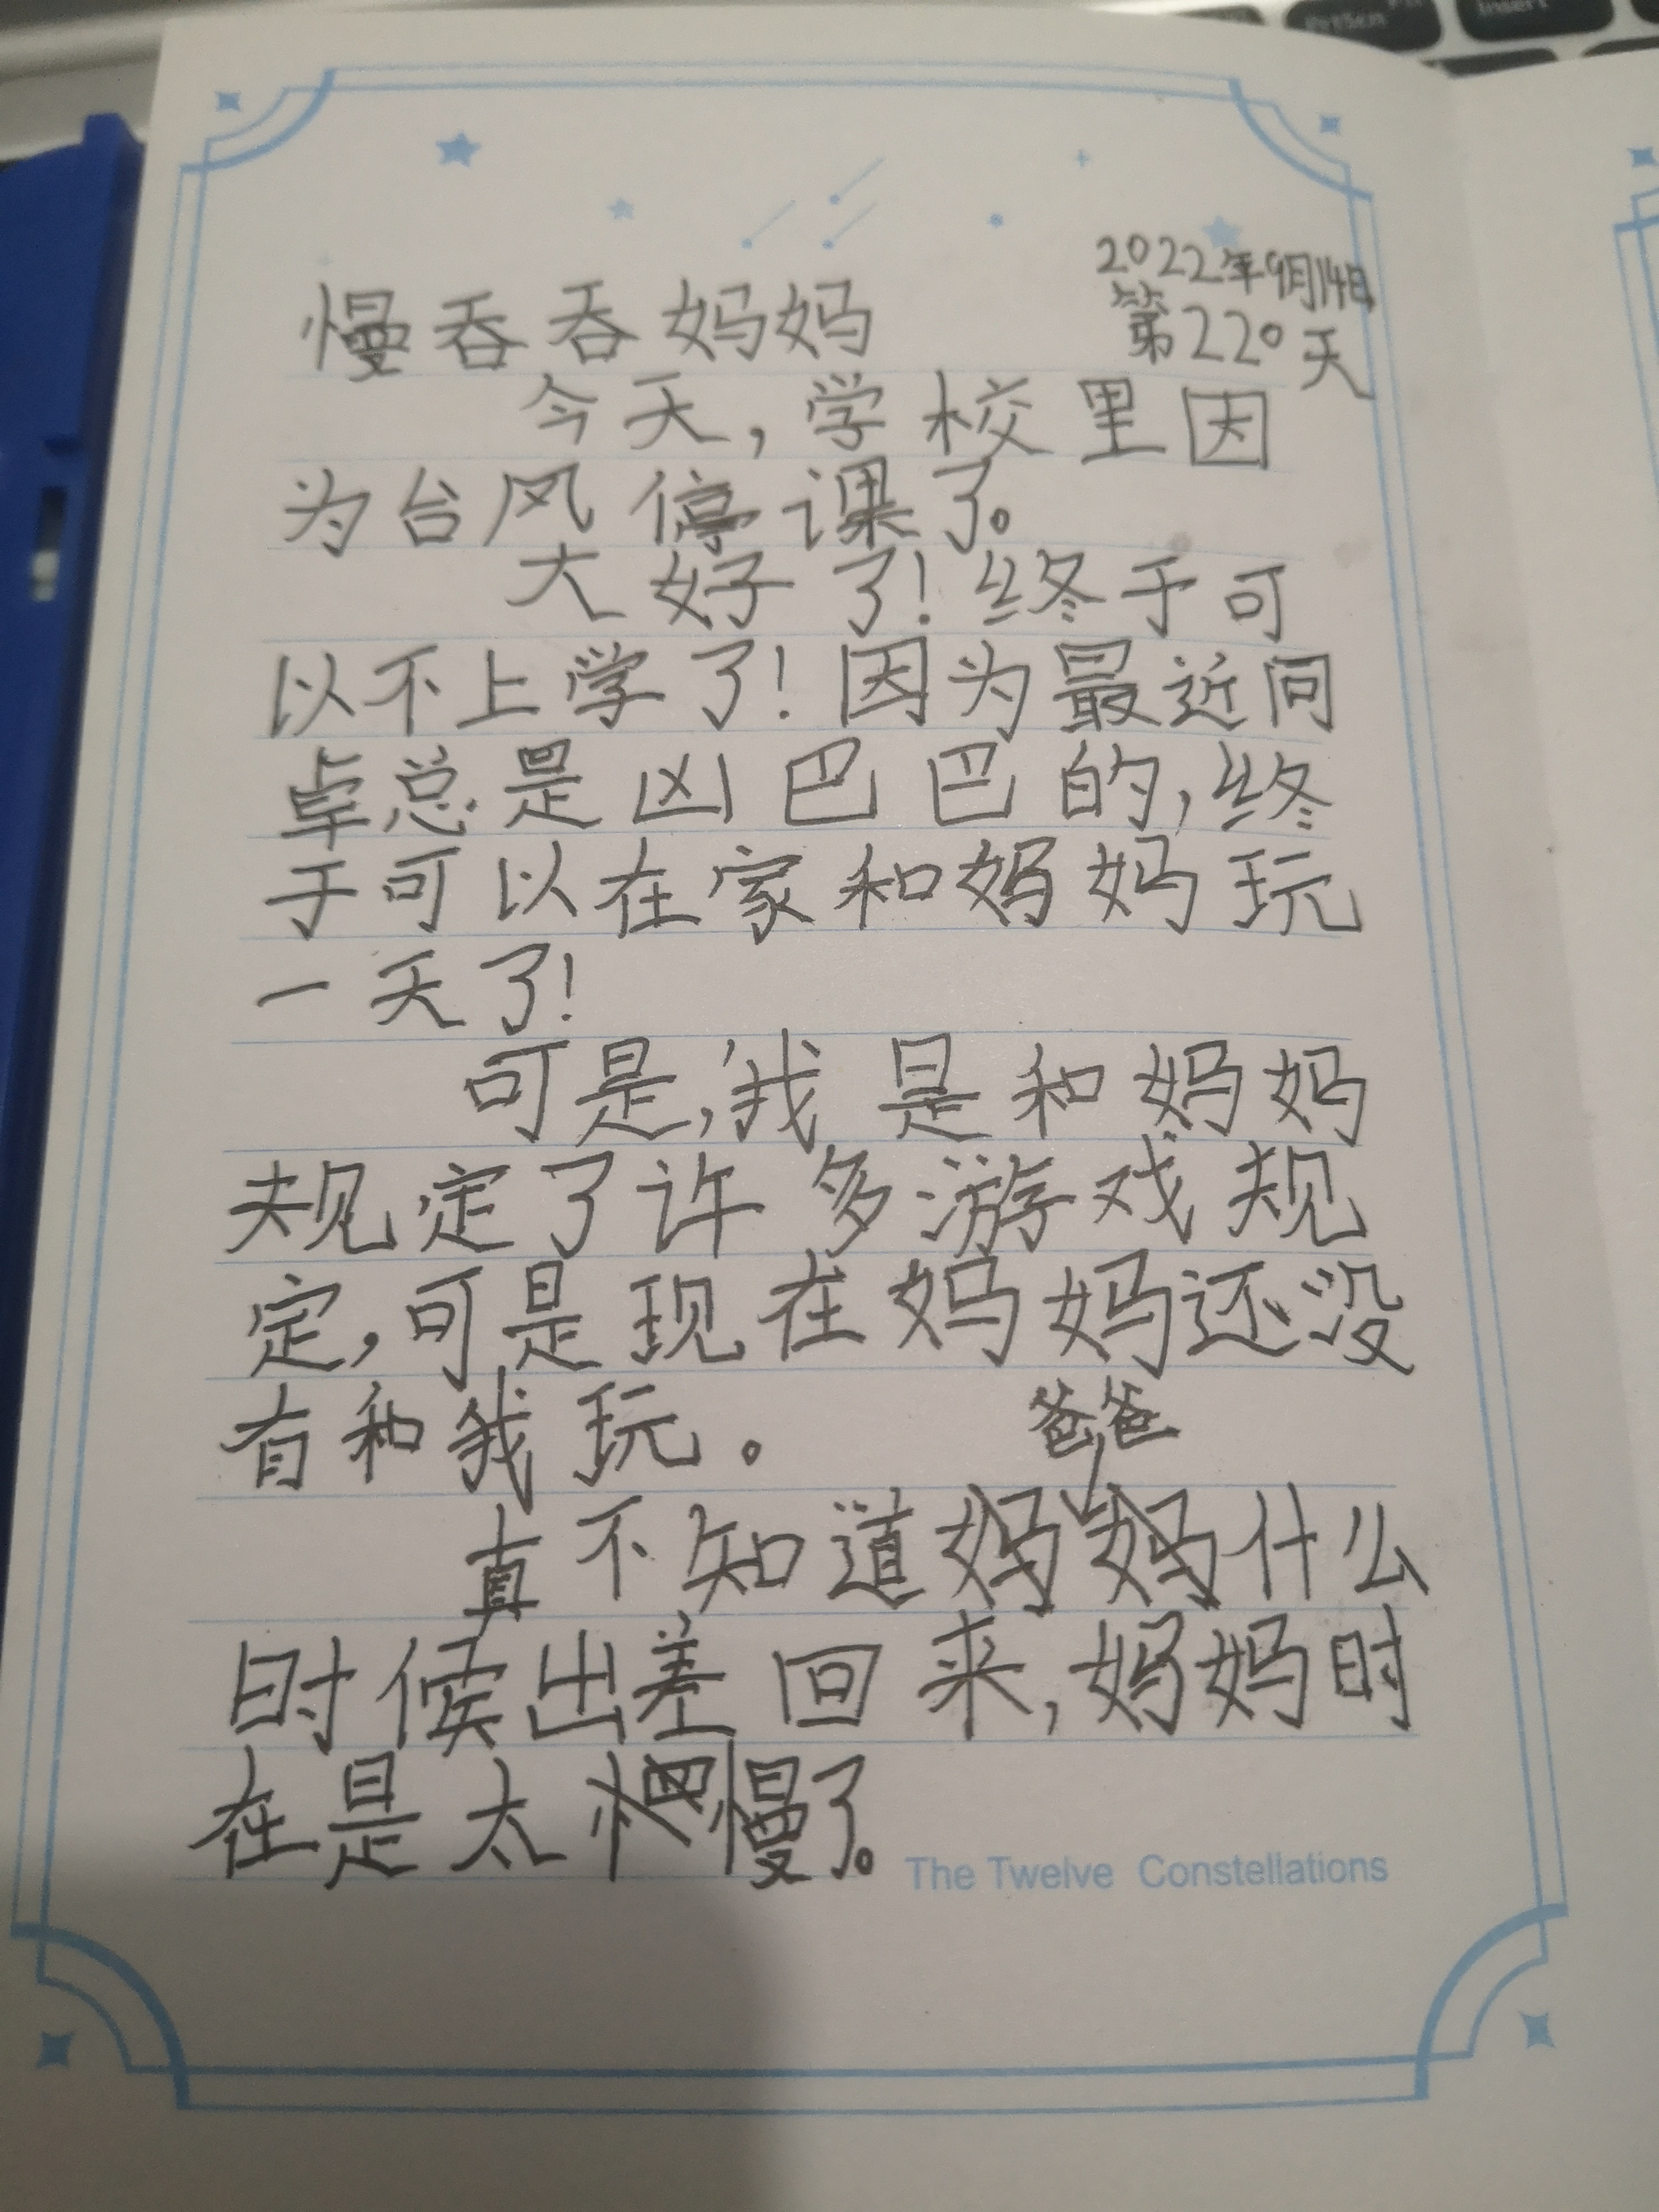 2022年9月14日
第220天
慢吞吞妈妈
今天,学校里因
为台风停课了。
大好了!终于可
以不上学了!因为最近同
卓总是凶巴巴的,终
于可以在家和妈妈玩
一天了!
可是,我是和妈妈
规定了许多游戏规
定,可是现在妈妈还没
有和我玩。
爸爸
真不知道妈妈什么
时候出差回来,妈妈时
在是太慢了。
The Twelve Constellations